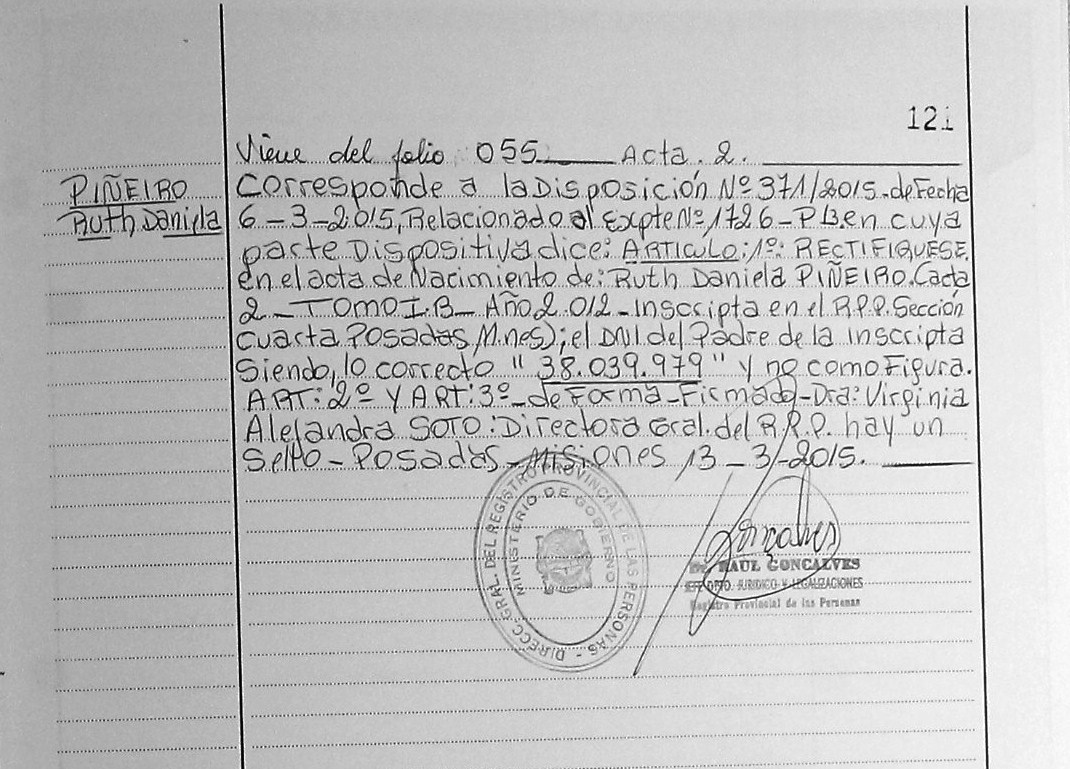 121
Viene del folio 055 Acta. 2.
PIÑEIRO
Ruth Daniela
Corresponde a la Disposición Nº 371/2015. de Fecha
6-3-2015, Relacionado al Expte Nº 1726-PB en cuya
parte Dispositiva dice: ARTICULO: 1º: RECTIFIQUESE
en el acta de Nacimiento de: Ruth Daniela PIÑEIRO. (acta
2 - TOMO I.B - Año 2.012 - Inscripta en el R.P.P. Sección
Cuarta Posadas, M.nes); el DNI del Padre de la inscripta
Siendo, lo correcto "38.039.979" y no como Figura.
ART: 2º Y ART: 3º - de Forma - Firmado - Dra: Virginia
Alejandra SOTO: Directora Gral. del R.P.P. hay un
Sello - Posadas - Misiones, 13-3-2015.
DIRECC. GRAL. DEL REGISTRO PROVINCIAL DE LAS PERSONAS
MINISTERIO DE GOBIERNO
Goncalves
RAUL GONCALVES
JEFE DPTO. JURIDICO Y LEGALIZACIONES
Registro Provincial de las Personas